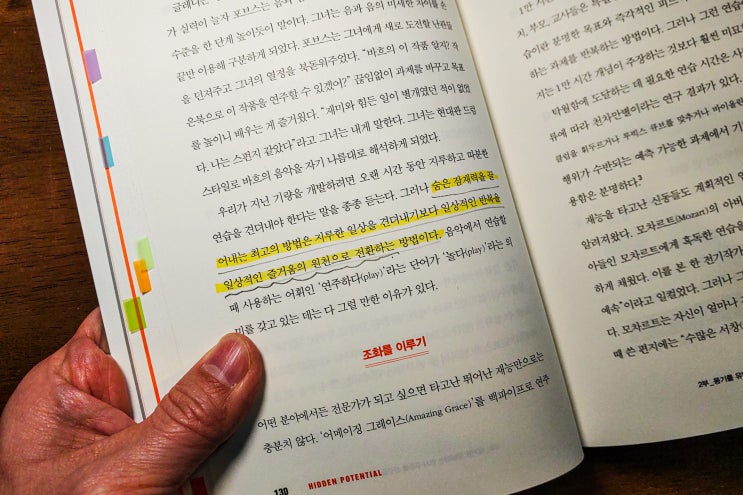 글레니는
가 실력이 늘자 포브스는 음과 음의 미세한 차이를 손
수준을 한 단계 높이듯이 말이다. 그녀는 음과 음의
끝만 이용해 구분하게 되었다. 포브스는 그녀에게 새로 도전할 난관들
을 던져주고 그녀의 열정을 북돋워주었다. “바흐의 이 작품 알지? 작
은북으로 이 작품을 연주할 수 있겠어?” 끊임없이 과제를 바꾸고 목표
를 높이니 배우는 게 즐거웠다. “재미와 힘든 일이 별개였던 적이 없었
다. 나는 스펀지 같았다”라고 그녀는 내게 말한다. 그녀는 현대판 드럼
스타일로 바흐의 음악을 자기 나름대로 해석하게 되었다.
우리가 지닌 기량을 개발하려면 오랜 시간 동안 지루하고 따분한
연습을 견뎌내야 한다는 말을 종종 듣는다. 그러나 숨은 잠재력을 끌
어내는 최고의 방법은 지루한 일상을 견뎌내기보다 일상적인 반복을
일상적인 즐거움의 원천으로 전환하는 방법이다. 음악에서 연습할
때 사용하는 어휘인 ‘연주하다(play)’라는 단어가 ‘놀다(play)’라는 의
미를 갖고 있는 데는 다 그럴 만한 이유가 있다.
조화를 이루기
어떤 분야에서든 전문가가 되고 싶으면 타고난 뛰어난 재능만으로는
충분치 않다. ‘어메이징 그레이스(Amazing Grace)’를 백파이프로 연주
130 HIDDEN POTENTIAL
1만 시간
치, 부모, 교사들은
습이란 분명한 목표와 즉각적인 피드
하는 과제를 반복하는 방법이다. 그러나 그런 연습
지는 1만 시간 개념이 주장하는 것보다 훨씬 미묘
탁월함에 도달하는 데 필요한 연습 시간은 사
유에 따라 천차만별이라는 연구 결과가 있다.
클럽을 휘두르거나 루빅스 큐브를 맞추거나 바이올린
행위가 수반되는 예측 가능한 과제에서 기
용함은 분명하다.³
재능을 타고난 신동들도 계획적인 연
알려져왔다. 모차르트(Mozart)의 아버
아들인 모차르트에게 혹독한 연습을
하게 채웠다. 이를 본 한 전기작가
예속”이라고 일컬었다. 그러나
다. 모차르트는 자신이 얼마나
때 쓴 편지에는 “수많은 서창
2부_동기를 유